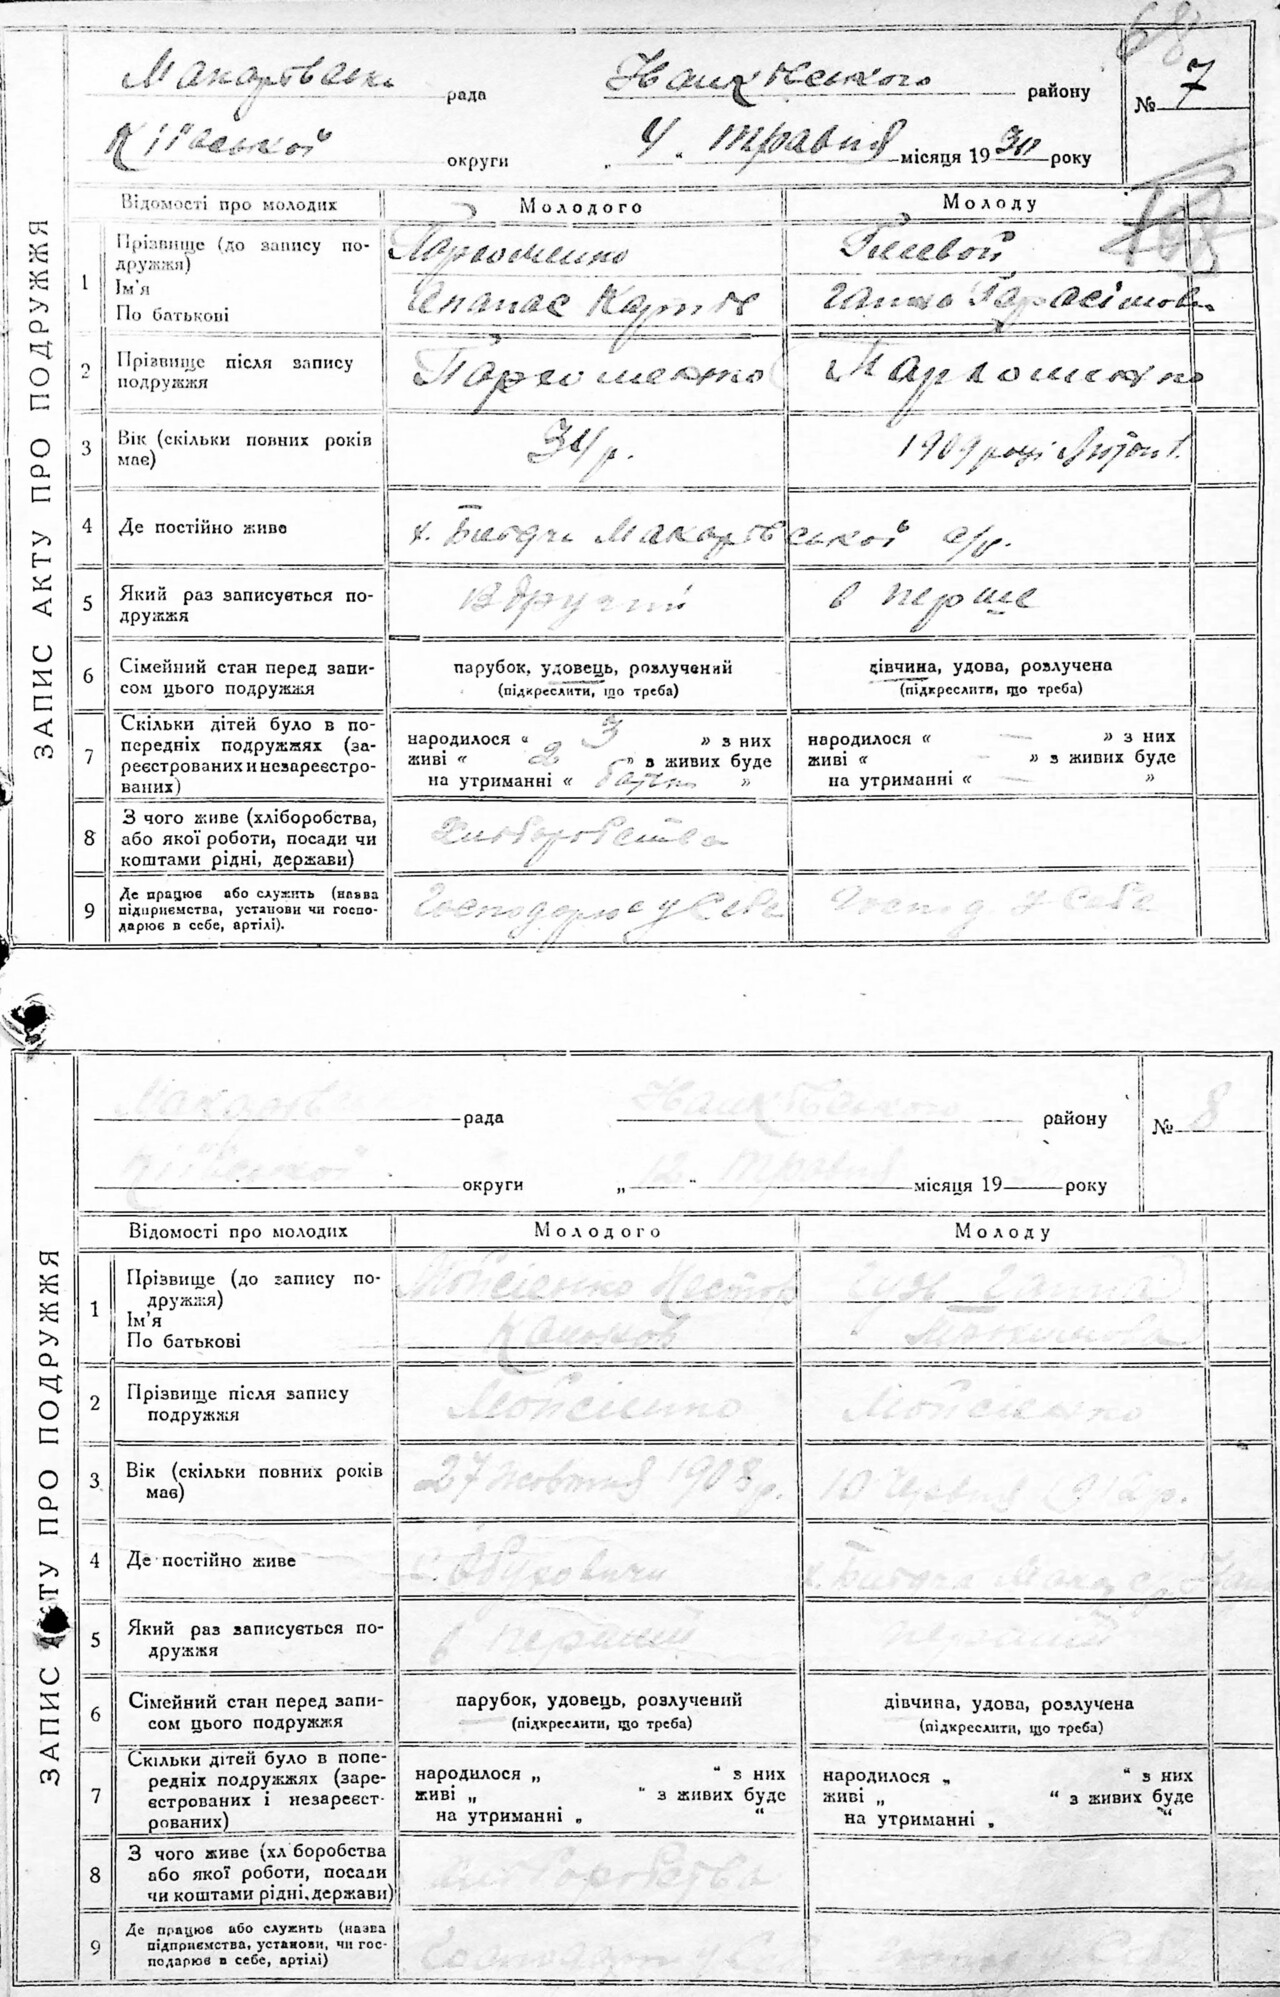 68
Макарівська рада Наихівського району № 7
Київської округи „ 4 „ травня місяця 1930 року
ЗАПИС АКТУ ПРО ПОДРУЖЖЯ
Відомості про молодих Молодого Молоду
1 Прізвище (до запису подружжя) Пархоменко
Ім'я Апанас Ганна Гарасімов
По батькові
2 Прізвище після запису Пархоменко Пархоменко
подружжя
3 Вік (скільки повних років 34 р. 1909 році
має)
4 Де постійно живе х. Макарівської с/р.
5 Який раз записується по- Вдругий в перше
дружжя
6 Сімейний стан перед запи- парубок, удовець, розлучений дівчина, удова, розлучена
сом цього подружжя (підкреслити, що треба) (підкреслити, що треба)
7 Скільки дітей було в по- народилося « 3 » з них народилося « — » з них
передніх подружжях (за- живі « 2 » з живих буде живі « — » з живих буде
реєстрованих и незареєстро- на утриманні « батька » на утриманні « — »
ваних)
8 З чого живе (хліборобства, Хліборобства
або якої роботи, посади чи
коштами рідні, держави)
9 Де працює або служить (назва Господарює у себе Господ у себе
підприємства, установи чи госпо-
дарює в себе, артілі).
Макарівська рада Наихівського району № 8
Київської округи „ 12 " травня місяця 19 року
ЗАПИС АКТУ ПРО ПОДРУЖЖЯ
Відомості про молодих Молодого Молоду
1 Прізвище (до запису по- Мойсієнко Нестор Гуж Ганна
дружжя)
Ім'я
По батькові
2 Прізвище після запису Мойсієнко Мойсієнко
подружжя
3 Вік (скільки повних років 27 жовтня 1908 р. 10 червня 1912 р.
має)
4 Де постійно живе с.
5 Який раз записується по- в перший перший
дружжя
6 Сімейний стан перед запи- парубок, удовець, розлучений дівчина, удова, розлучена
сом цього подружжя (підкреслити, що треба) (підкреслити, що треба)
7 Скільки дітей було в попе- народилося „ " з них народилося „ " з них
редніх подружжях (заре- живі „ " з живих буде живі „ " з живих буде
єстрованих і незареєст- на утриманні „ " на утриманні „ "
рованих)
8 З чого живе (хл боробства хліборобства
або якої роботи, посади
чи коштами рідні, держави)
9 Де працює або служить (назва Господар у себе у себе
підприємства, установи, чи гос-
подарює в себе, артілі)